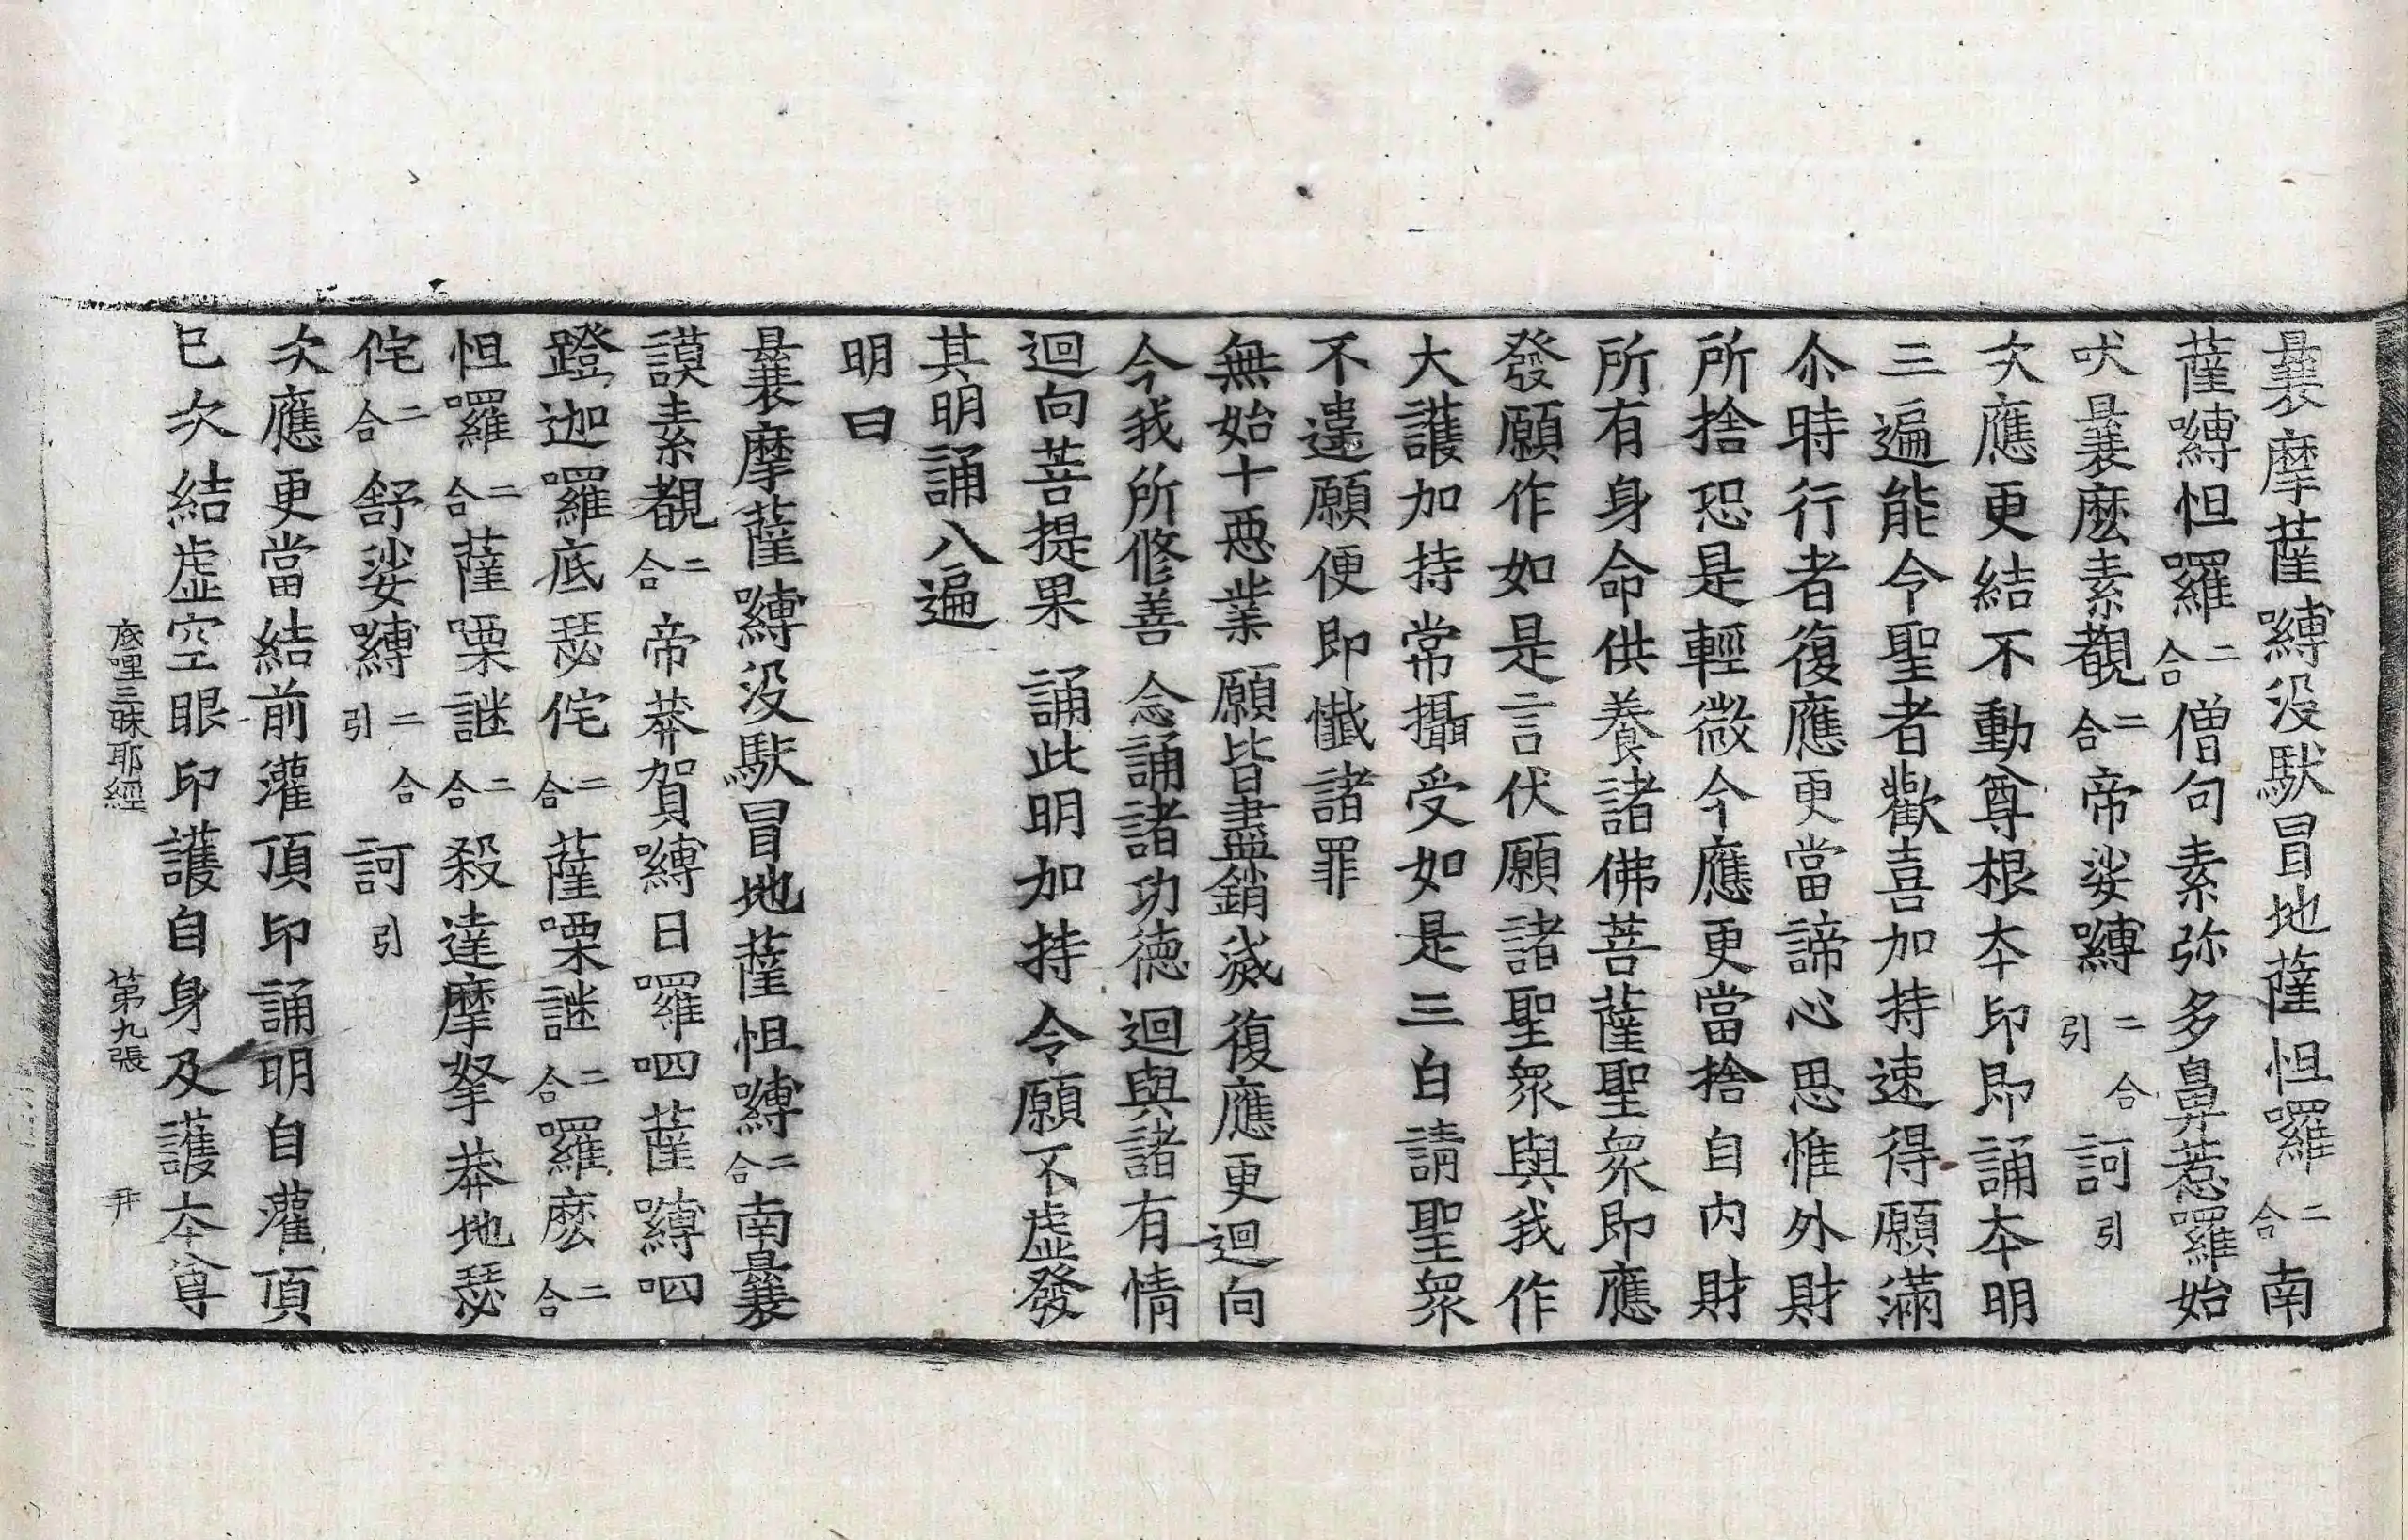 曩摩薩嚩没馱冒地薩怛羅二合南
薩嚩怛羅二合僧句素弥多鼻惹羅始
吠曩麽素覩二合帝娑嚩二合引訶引
次應更結不動尊根夲印即誦夲明
三遍能令聖者歡喜加持速得願滿
尒時行者復應更當諦心思惟外財
所捨恐是輕微今應更當捨自内財
所有身命供養諸佛菩薩聖衆即應
發願作如是言伏願諸聖衆與我作
大護加持常攝受如是三白請聖衆
不違願便即懺諸罪
無始十惡業 願皆盡銷滅復應更迴向
今我所修善 念誦諸功德 迴與諸有情
迴向菩提果 誦此明加持 令願不虛發
其明誦八遍
明曰
曩摩薩嚩没馱冒地薩怛嚩二合南曩
謨素覩二合帝莽賀嚩日囉呬薩嚩呬
蹬迦囉底瑟侘二合薩㗚謎二合羅麽二合
怛囉二合薩㗚謎二合殺達摩拏莽地瑟
侘二合舒娑嚩二合引訶引
次應更當結前灌頂印誦明自灌頂
已次結虛空眼印護自身及護夲尊
底哩三昧耶經 第九張